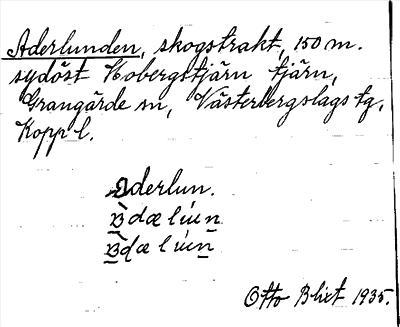 Aderlunden, skogstrakt, 150 m.
sydöst Hobergstjärn tjärn,
Grangärde sn, Västerbergslags tg,
Kopp l.
Aderlun.
Otto Blixt 1935.